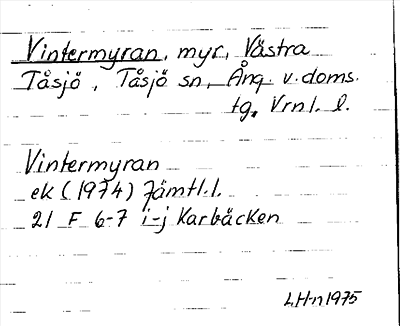 Vintermyran, myr, Västra
Tåsjö, Tåsjö sn, Ång. v. doms.
tg, Vrnl. l.
Vintermyran
ek (1974) Jämtl.l.
21 F 6-7 i-j Karbäcken
LH-n 1975